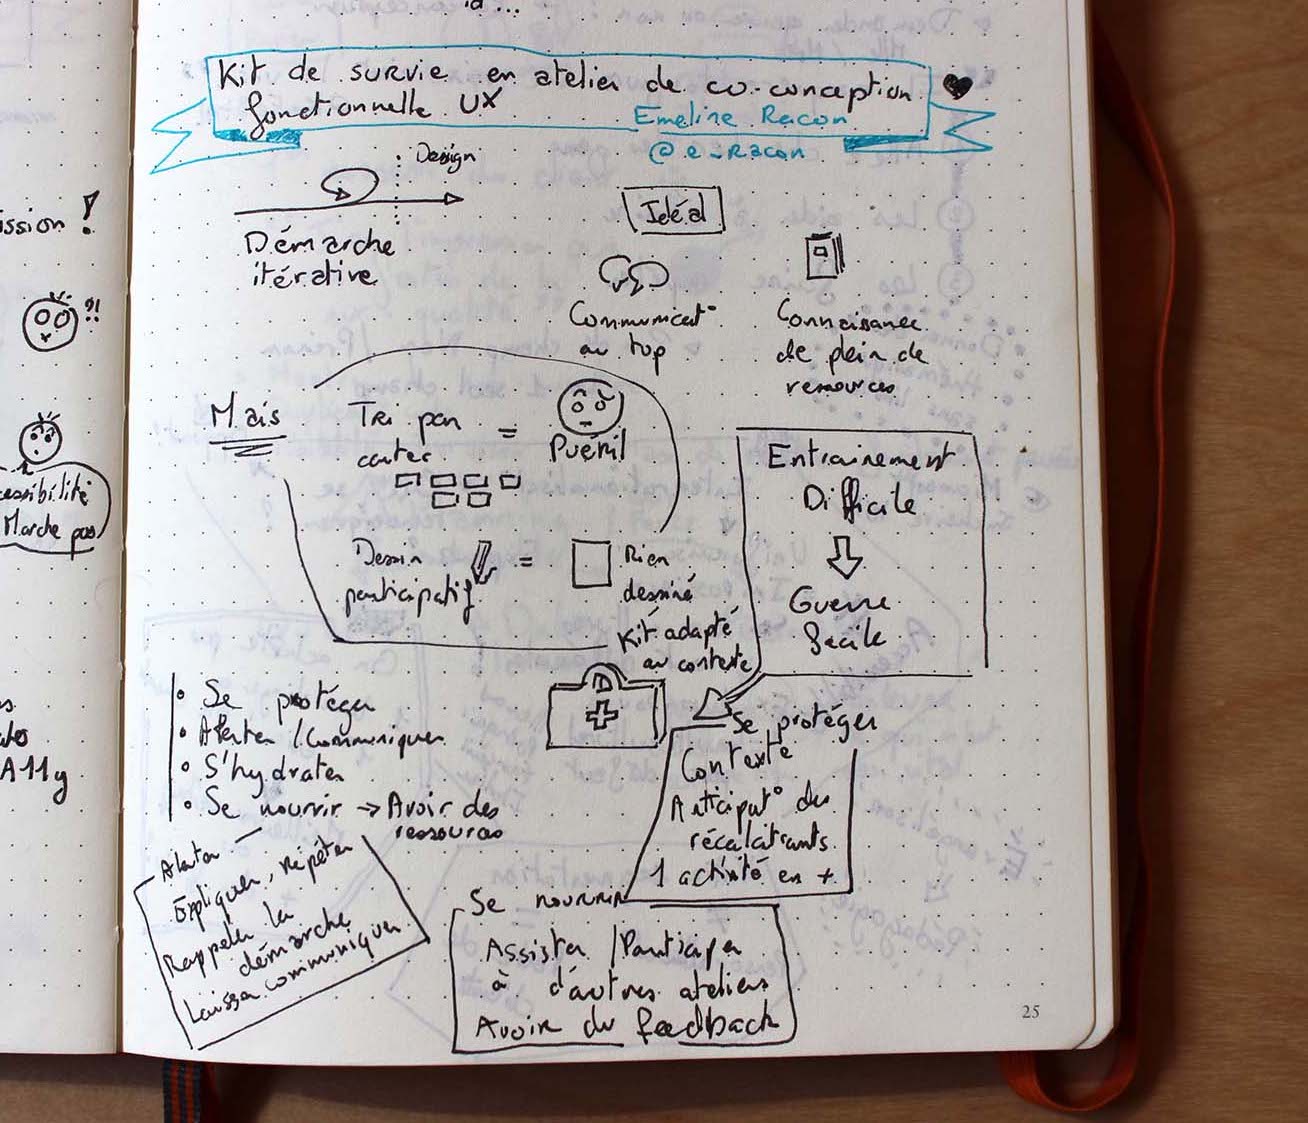 Kit de survie en atelier de co-conception
fonctionnelle UX
Emeline Racon
@e_Racon
Design
Démarche
itérative
Idéal
Communicat°
au top
Connaissance
de plein de
ressources
Mais
Tri par
cartes
=
Puéril
Dessin
participatif
=
Rien
dessiné
Entrainement
Difficile
Guerre
facile
Kit adapté
au contexte
• Se protéger
• Alerter / Communiquer
• S'hydrater
• Se nourrir → Avoir des
ressources
Se protéger
Contexte
Anticipat° des
récalcitrants
1 activité en +
Alerter
Expliquer, répéter
Rappeler la
démarche
Laisser communiquer
Se nourrir
Assister / Participer
à d'autres ateliers
Avoir du feedback
25
ission !
?!
essibilité
Marche pas
A11y